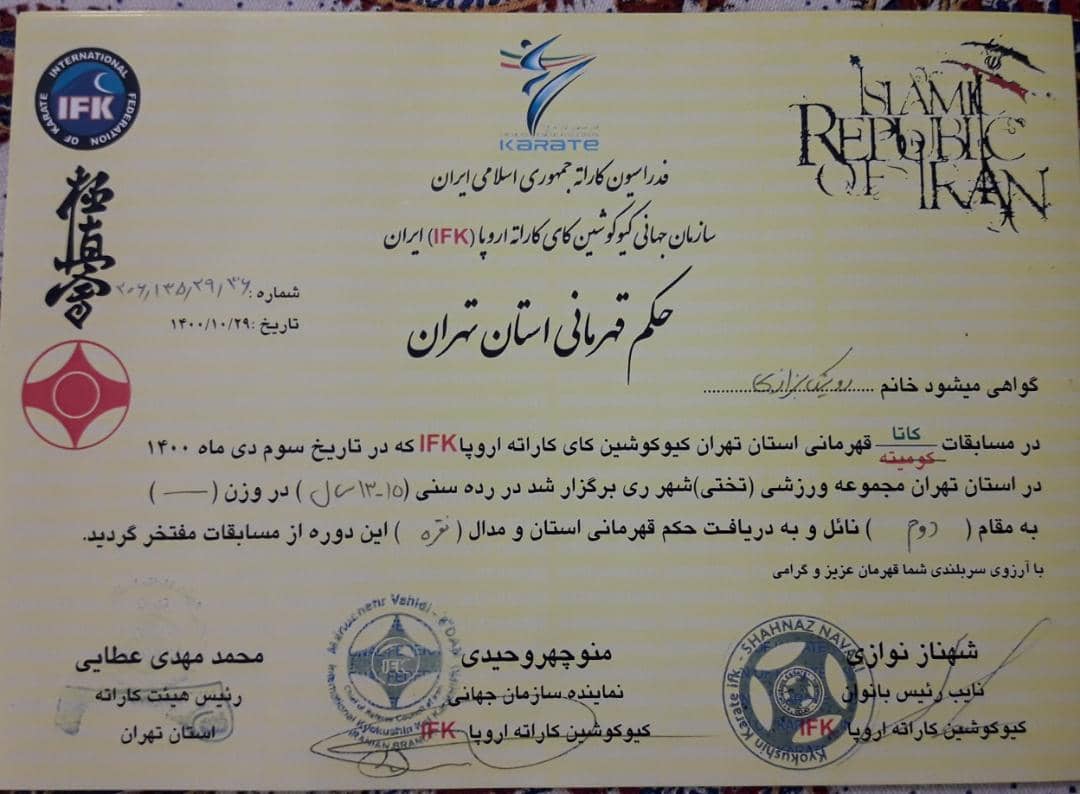 INTERNATIONAL FEDERATION OF KARATE
IFK
KARATE
ISLAMIC
REPUBLIC
OF IRAN
極真会
فدراسیون کاراته جمهوری اسلامی ایران
سازمان جهانی کیوکوشین کای کاراته اروپا (IFK) ایران
شماره : ۲۰۶/۱۳۵/۲۹/۳۶
تاریخ : ۱۴۰۰/۱۰/۲۹
حکم قهرمانی استان تهران
گواهی میشود خانم
در مسابقات کاتا کومیته قهرمانی استان تهران کیوکوشین کای کاراته اروپا IFK که در تاریخ سوم دی ماه ۱۴۰۰
در استان تهران مجموعه ورزشی (تختی) شهر ری برگزار شد در رده سنی (۱۳-۱۵ سال) در وزن (—)
به مقام ( دوم ) نائل و به دریافت حکم قهرمانی استان و مدال ( نقره ) این دوره از مسابقات مفتخر گردید.
با آرزوی سربلندی شما قهرمان عزیز و گرامی
شهناز نوازی
نایب رئیس بانوان
کیوکوشین کاراته اروپا IFK
منوچهر وحیدی
نماینده سازمان جهانی
کیوکوشین کاراته اروپا IFK
محمد مهدی عطایی
رئیس هیئت کاراته
استان تهران